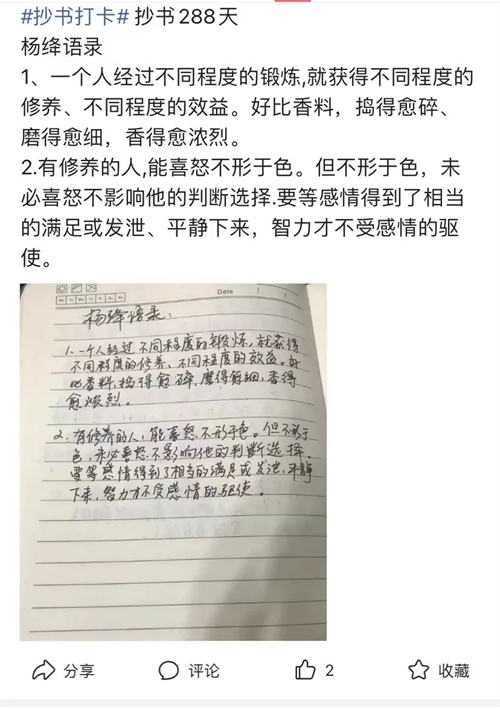 #抄书打卡# 抄书288天
杨绛语录
1、一个人经过不同程度的锻炼,就获得不同程度的
修养、不同程度的效益。好比香料，捣得愈碎、
磨得愈细，香得愈浓烈。
2.有修养的人,能喜怒不形于色。但不形于色，未
必喜怒不影响他的判断选择.要等感情得到了相当
的满足或发泄、平静下来，智力才不受感情的驱
使。
Date
杨绛语录：
1、一个人经过不同程度的锻炼，就获得
不同程度的修养、不同程度的效益。好
比香料，捣得愈碎，磨得愈细，香得
愈浓烈。
2、有修养的人，能喜怒不形于色。但不形于
色，未必喜怒不影响他的判断选择。
要等感情得到了相当的满足或发泄、平静
下来，智力才不受感情的驱使。
分享
评论
2
收藏